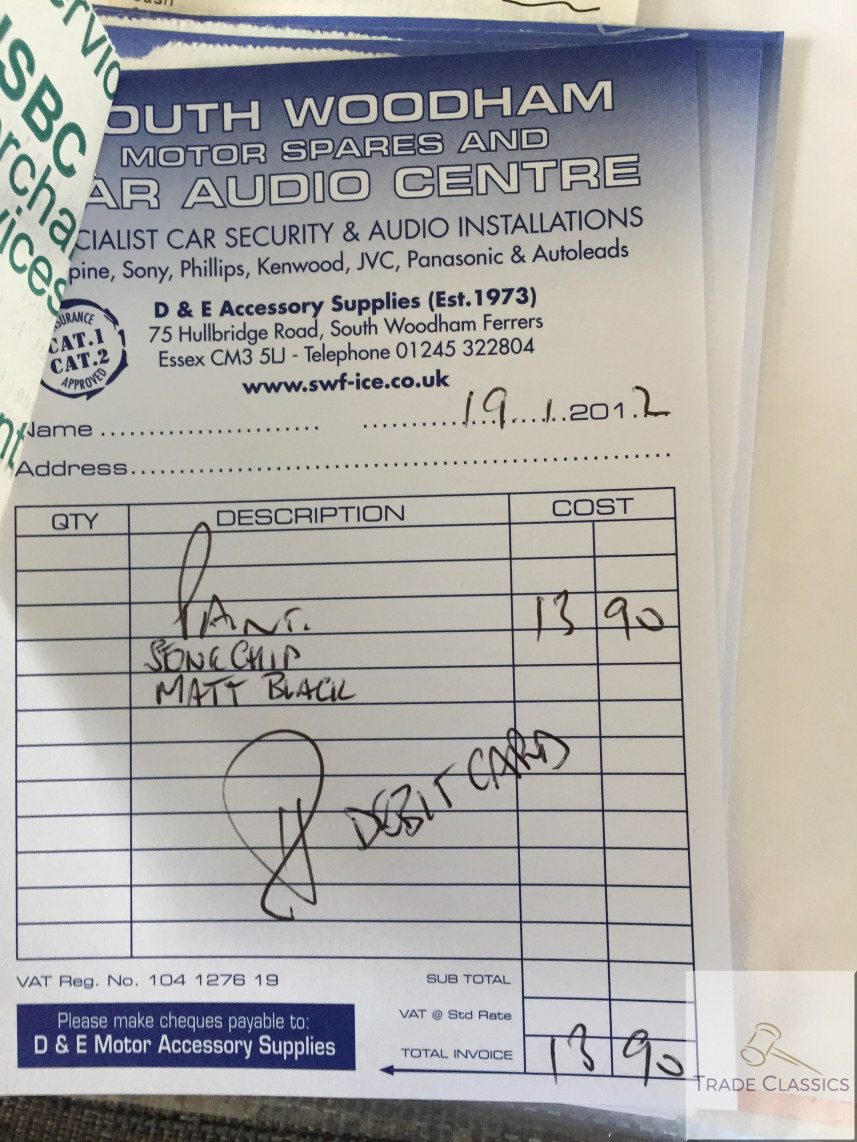 ervic
SBC
ercha
ices
nt
OUTH WOODHAM
MOTOR SPARES AND
AR AUDIO CENTRE
CIALIST CAR SECURITY & AUDIO INSTALLATIONS
pine, Sony, Phillips, Kenwood, JVC, Panasonic & Autoleads
D & E Accessory Supplies (Est.1973)
75 Hullbridge Road, South Woodham Ferrers
Essex CM3 5LJ - Telephone 01245 322804
www.swf-ice.co.uk
SURANCE
CAT.1
CAT.2
APPROVED
Name .......................... 19.1.2012
Address
QTY DESCRIPTION COST
PAINT. 13 90
STONE CHIP
MATT BLACK
DEBIT CARD
VAT Reg. No. 104 1276 19 SUB TOTAL
VAT @ Std Rate
Please make cheques payable to:
D & E Motor Accessory Supplies
TOTAL INVOICE 13 90
TRADE CLASSICS